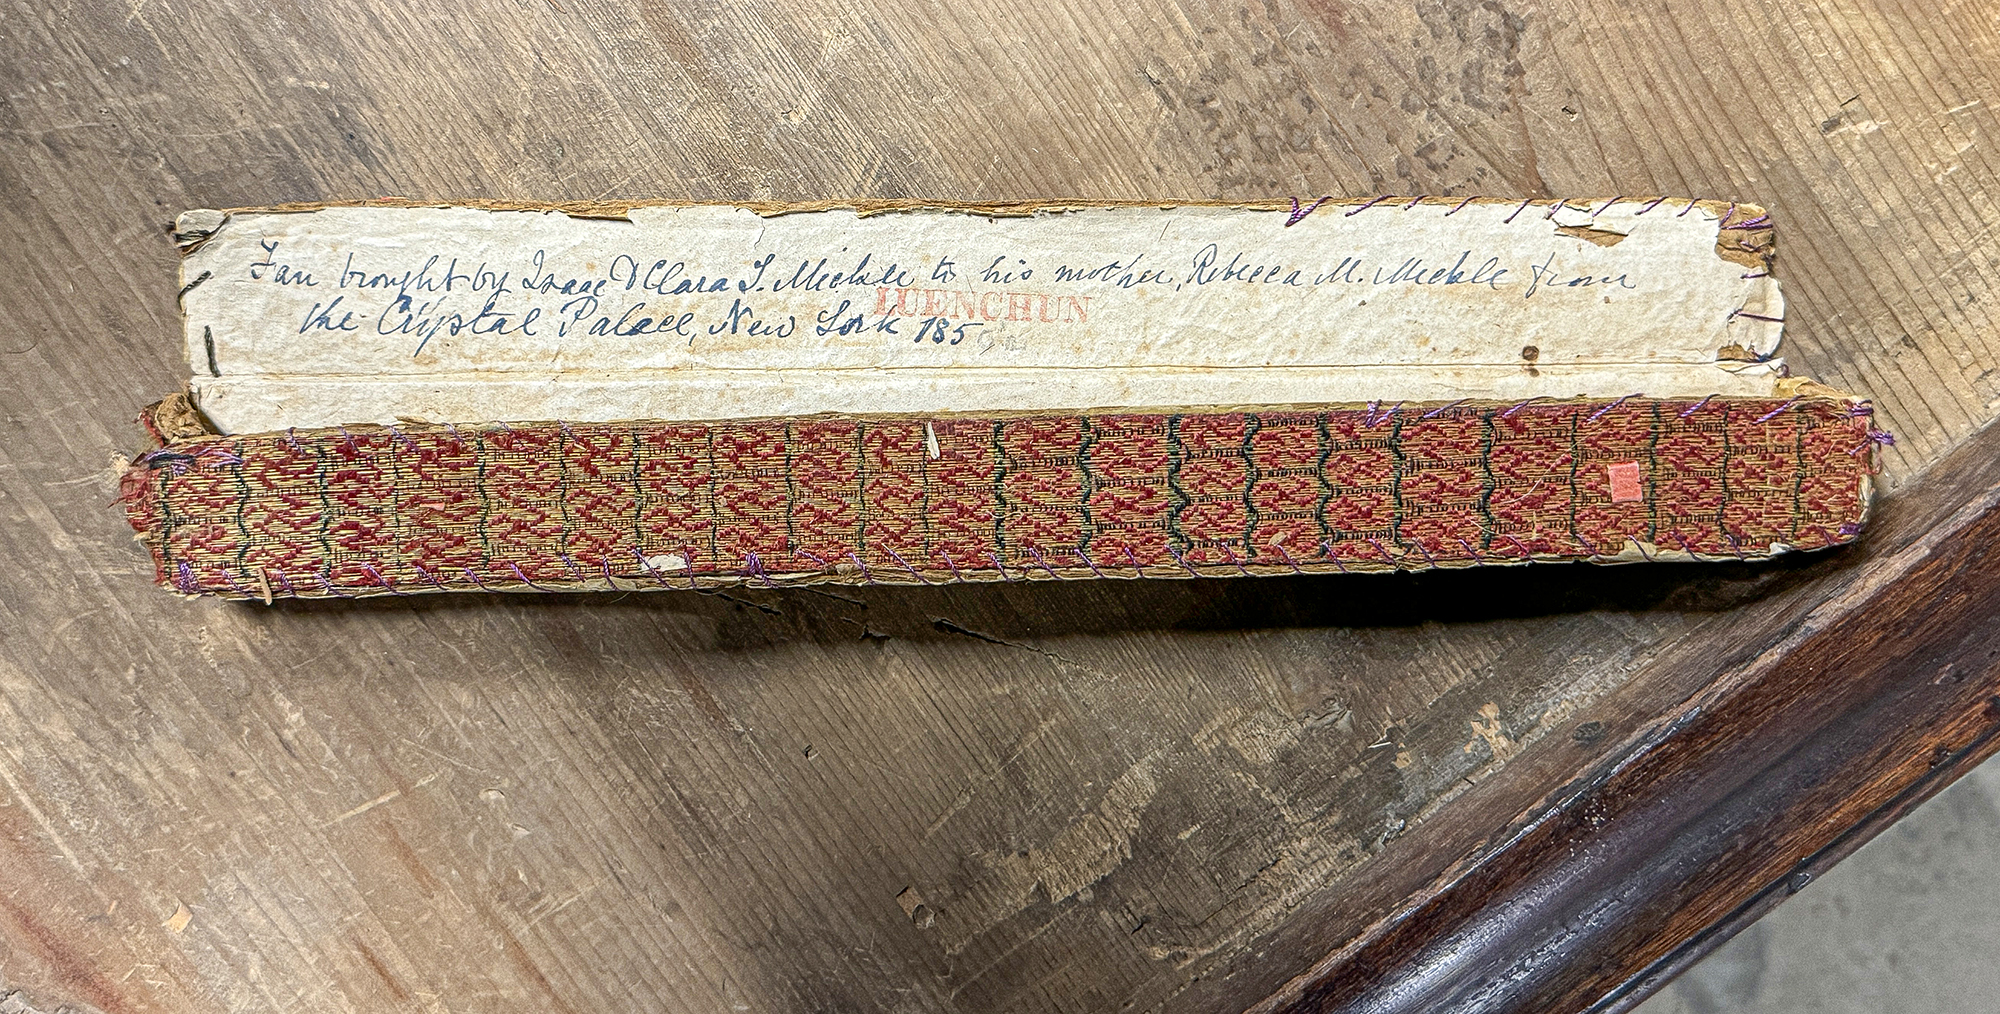 Fan brought by Isaac & Clara T. Mickle to his mother, Rebecca M. Mickle from
LUENCHUN
the Crystal Palace, New York 185